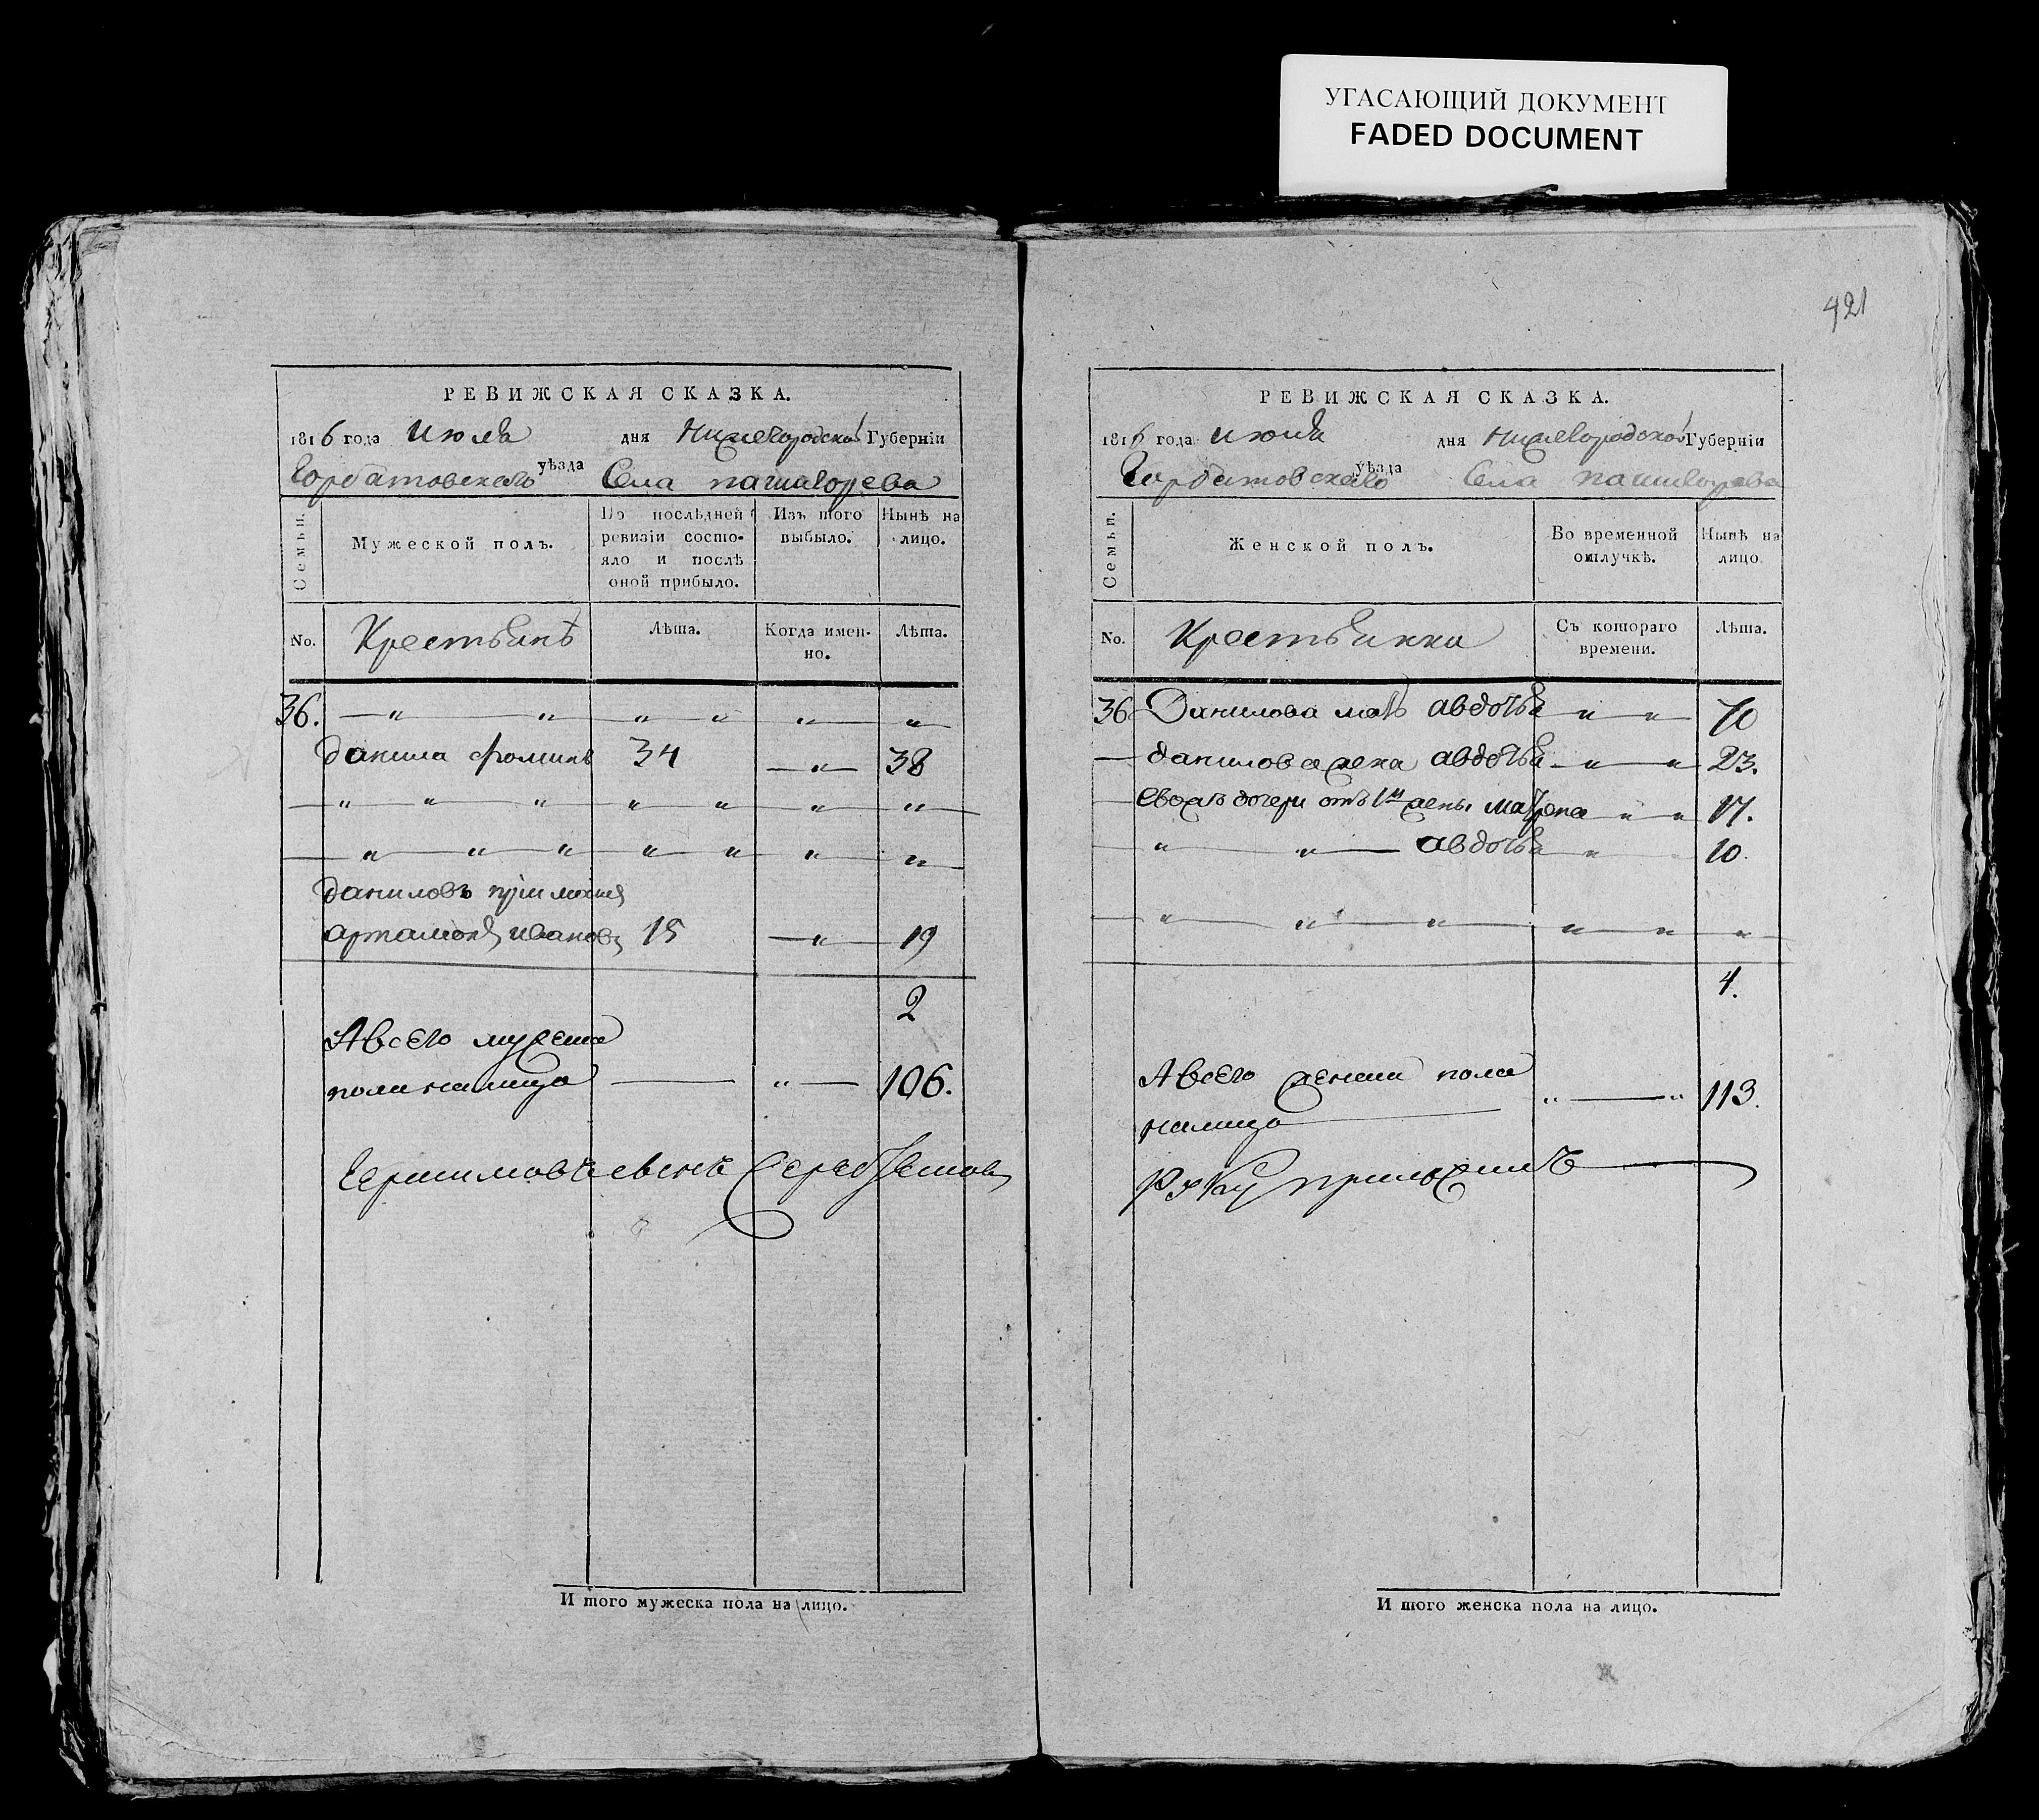 УГАСАЮЩИЙ ДОКУМЕНТ
FADED DOCUMENT
РЕВИЖСКАЯ СКАЗКА.
1816 года Июля дня Нижегородской Губерніи
Горбатовскаго уѣзда Села
Семьи.
Мужеской полъ.
По послѣдней ревизіи состояло и послѣ оной прибыло.
Изъ того выбыло.
Ныне на лицо.
No.
Крестьянъ
Лѣта.
Когда именно.
Лѣта.
36. — " — " — " — " — " — "
данила фоминъ 34 — " — 38
— " — " — " — " — " — " — "
— " — " — " — " — " — " — "
даниловъ
артамонъ ивановъ 15 — " — 19
2
А всего мужеска
пола налицо — " — 106.
Руку приложилъ
И того мужеска пола на лицо.
421
РЕВИЖСКАЯ СКАЗКА.
1816 года июля дня Нижегородской Губерніи
Горбатовскаго уѣзда Села
Семьи.
Женской полъ.
Во временной отлучкѣ.
Нынѣ на лицо.
No.
Крестьянки
Съ котораго времени.
Лѣта.
36 Данилова мать авдотья — " — " — 70
— данилова жена авдотья — " — " 23.
— Евоже дочери отъ 1й жены матрена — " — " 17.
— " — " — авдотья — " — 10.
— " — " — " — " — " — "
4.
А всего женска пола
налицо " — " 113.
И того женска пола на лицо.